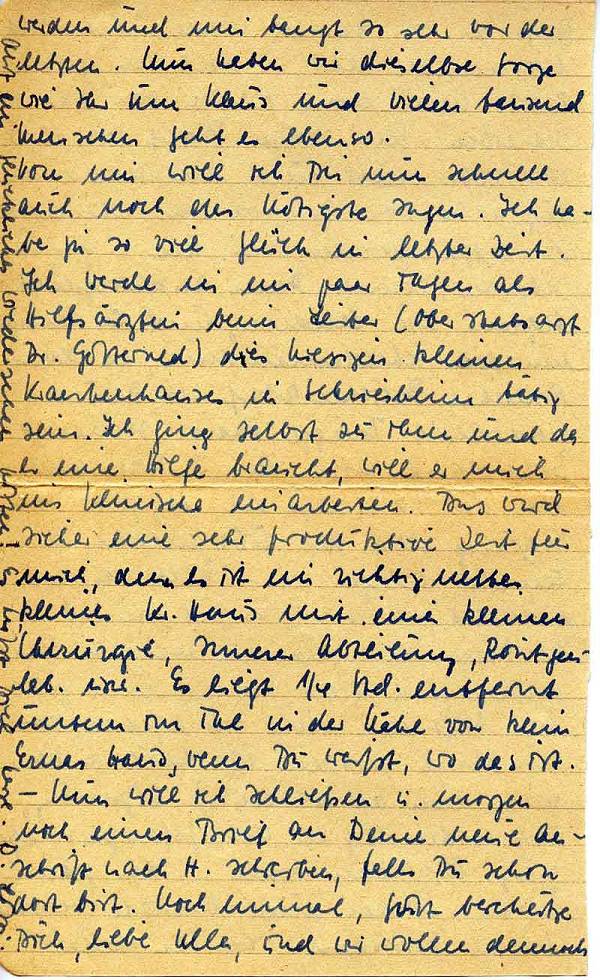 werden und mir bangt so sehr vor der
letzten. Nun haben wir dieselbe Sorge
wie Ihr um Klaus und vielen tausend
Menschen geht es ebenso.
Von mir will ich Dir nun schnell
auch noch das Nötigste sagen. Ich ha-
be ja so viel Glück in letzter Zeit.
Ich werde in ein paar Tagen als
Hilfsärztin beim Leiter (Oberstabsarzt
Dr.) des hiesigen kleinen
Krankenhauses in Schriesheim tätig
sein. Ich ging selbst zu ihm und da
er eine Hilfe braucht, will er mich
ins Klinische einarbeiten. Das wird
sicher eine sehr produktive Zeit für
mich, denn es ist ein richtig nettes
kleines Kr. Haus mit einer kleinen
Chirurgie, innerer Abteilung, Röntgen-
lab. usw. Es liegt 1/4 Std. entfernt
unten im Tal in der Nähe von klein
Ernas, wenn Du weißt, wo das ist.
– Nun will ich schließen u. morgen
noch einen Brief an Deine neue An-
schrift nach H. schreiben, falls Du schon
dort bist. Noch einmal, Gott beschütze
Dich, liebe Ulla, und wir wollen dennoch
auf ein glückliches Wiedersehen hoffen! Es